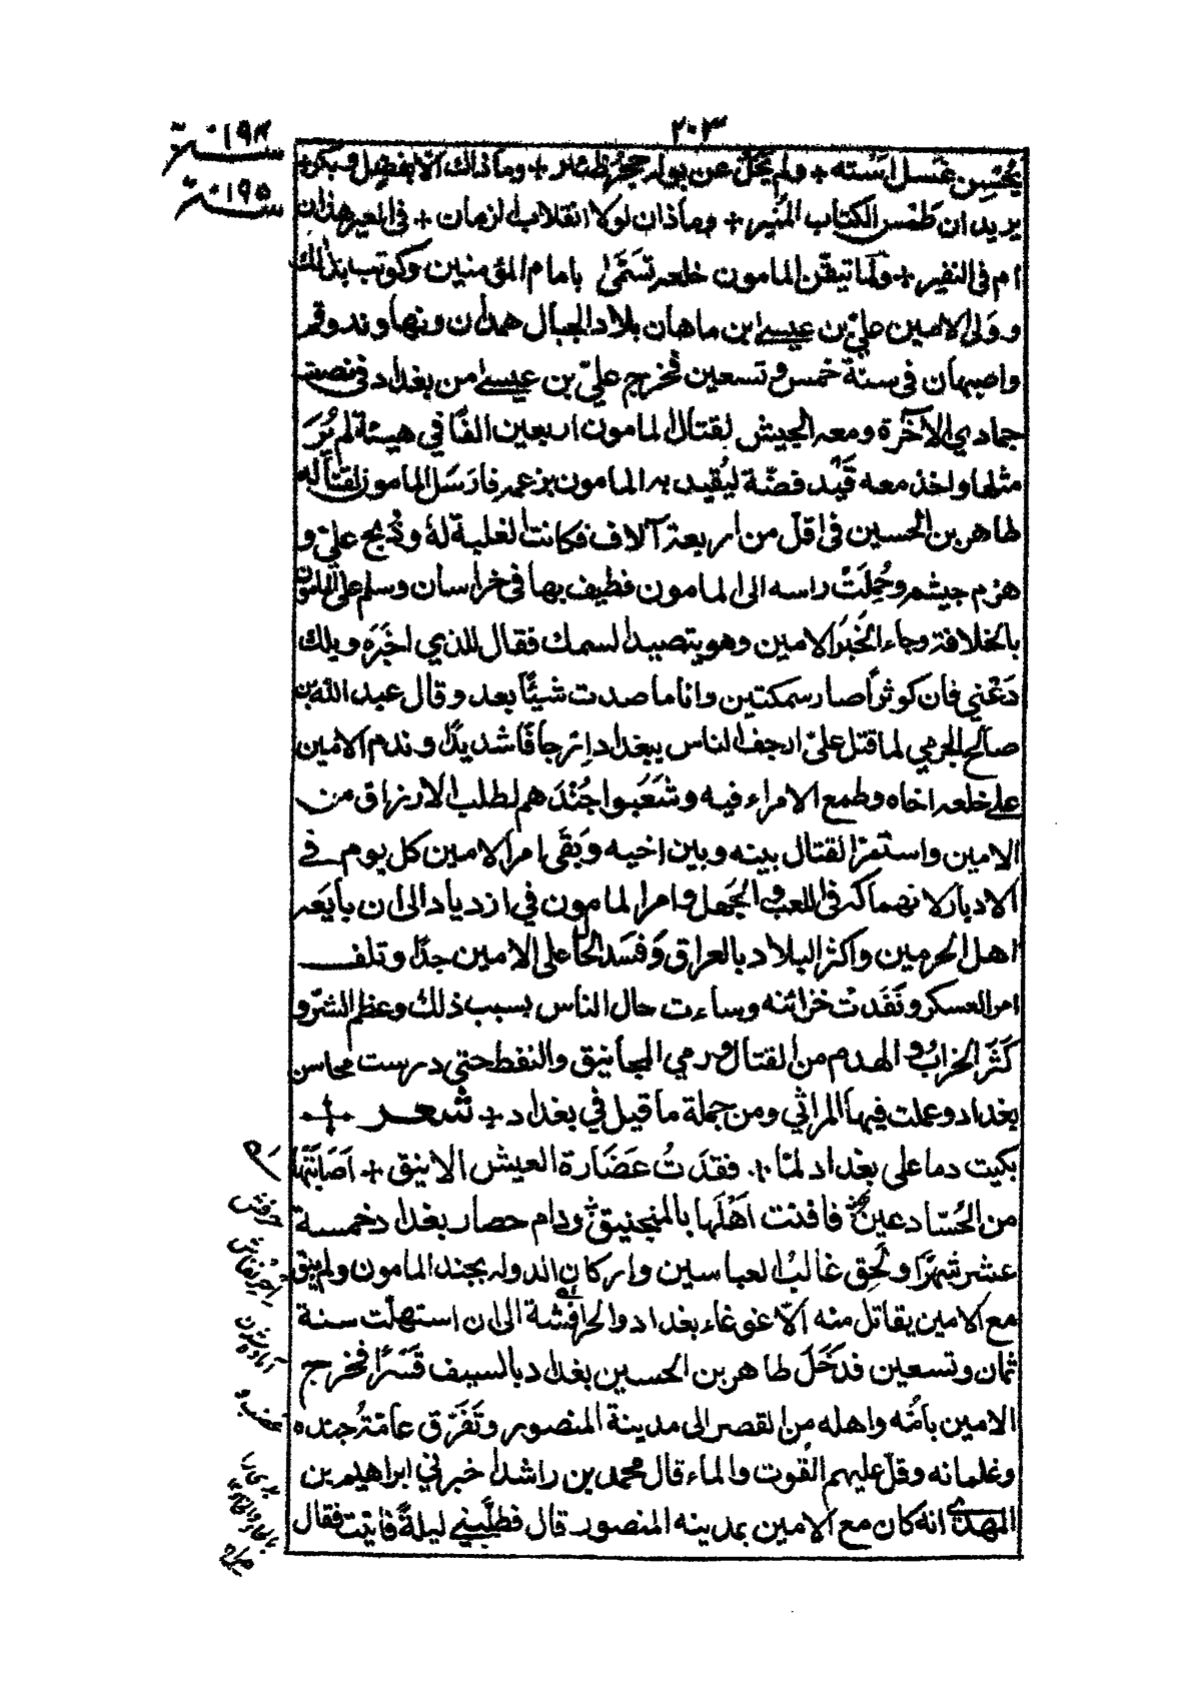 ٢٠٣
سنة ١٩٤
سنة ١٩٥
يحسن غسل استه + ولم يخل عن بوله حجر ظئر + وما ذاك الا بفضل وبكر +
يريدان طمس الكتاب المنير + وما ذان لولا انقلاب الزمان + في العير هذان
ام في النفير + ولما تيقن المامون خلعه تسمى بامام المؤمنين وكوتب بذلك
وولى الامين علي بن عيسى ابن ماهان بلاد الجبال همدان ونهاوند وقم
واصبهان في سنة خمس وتسعين فخرج علي بن عيسى من بغداد في نصف
جمادي الآخرة ومعه الجيش لقتال المامون اربعين الفا في هيئة لم يُرَ
مثلها واخذ معه قَيْد فضة ليُقيد به المامون بزعمه فارسَل المامون لقتاله
طاهر بن الحسين في اقل من اربعة آلاف فكانت الغلبة له وذُبح علي و
هزم جيشه وحُمِلَتْ راسه الى المامون فطيف بها في خراسان وسلم على المامون
بالخلافة وجاء الخبَر الامين وهو يتصيد السمك فقال للذي اخبَرَه ويلك
دَعْني فان كوثراً صار سمكتين وانا ما صدت شيئًا بعد وقال عبد الله بن
صالح الجرمي لما قتل علي ارجف الناس ببغداد اِرجافًا شديدًا وندم الامين
على خلعه اخاه وطمع الامراء فيه وشَعَبوا جُنْدَهم لطلب الارزاق من
الامين واستمر القتال بينه وبين اخيه وبَقَي امر الامين كل يوم في
الادبار لانهماكه في اللعب والجَهل وامر المامون في ازدياد الى ان بايَعه
اهل الحرمين واكثر البلاد بالعراق وَفسَد الحال على الامين جدًا وتلف
امر العسكر ونَفَدتْ خزائنه وساءت حال الناس بسبب ذلك وعظم الشر و
كَثَر الخرابُ والهدم من القتال ورمي المجانيق والنفط حتى درست محاسن
بغداد وعملت فيها المراثي ومن جملة ما قيل في بغداد + شعر +
بكيت دما على بغداد لمّا + فقدتُ غضارة العيش الانيق + اَصابَتْها
من الحُسّاد عين فافنت اَهْلَها بالمنجنيق ودام حصار بغداد خمسة
عشر شهرًا ولَحِق غالبُ العباسين واركان الدوله بجند المامون ولم يبق
مع الامين يقاتل منه الّا غوغاء بغداد والحرافشة الى ان استهلّت سنة
ثمان وتسعين فدَخَلَ طاهر بن الحسين بغداد بالسيف قَسْرًا فخرج
الامين بامّه واهله من القصر الى مدينة المنصور وتَفَرّق عامّةُ جنده
وغلمانه وقلّ عليهم القُوت والماء قال محمد بن راشد اخبرني ابراهيم بن
المهدى انه كان مع الامين بمدينه المنصور قال فطلَبني ليلةً فاتيت فقال